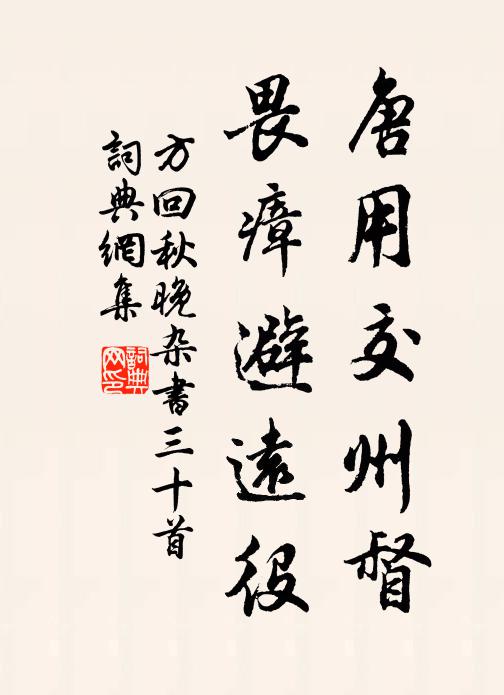 唐用交州督
畏瘴避遠役
方回秋晚杂書三十首
詞典網集
詞典網印